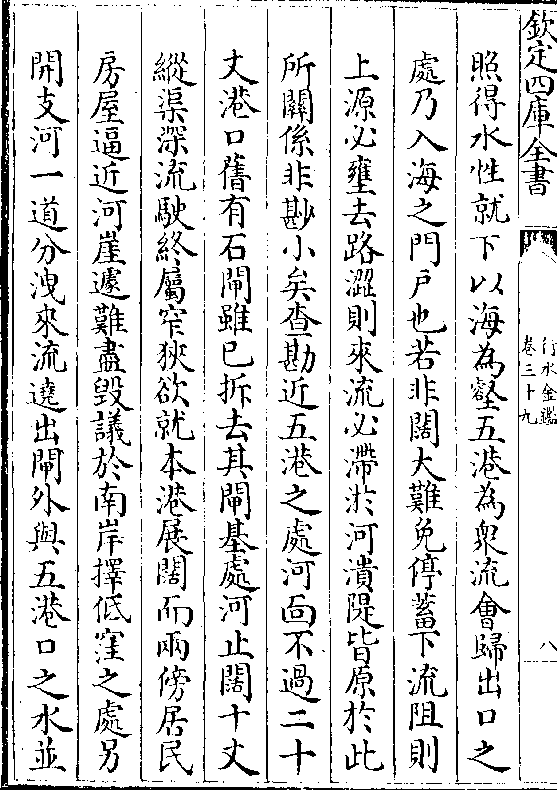 欽定四庫全書
行水金鑑
卷三十九
八
照得水性就下以海為壑五港為衆流會歸出口之
處乃入海之門户也若非闊大難免停蓄下流阻則
上源必壅去路澀則來流必滯淤河潰隄皆原於此
所關係非尠小矣查勘近五港之處河面不過二十
丈港口舊有石閘雖已拆去其閘基處河止闊十丈
縱渠深流駛終屬窄狹欲就本港展闊而兩傍居民
房屋逼近河崖遽難盡毁議於南岸擇低窪之處另
開支河一道分洩來流遶出閘外與五港口之水並